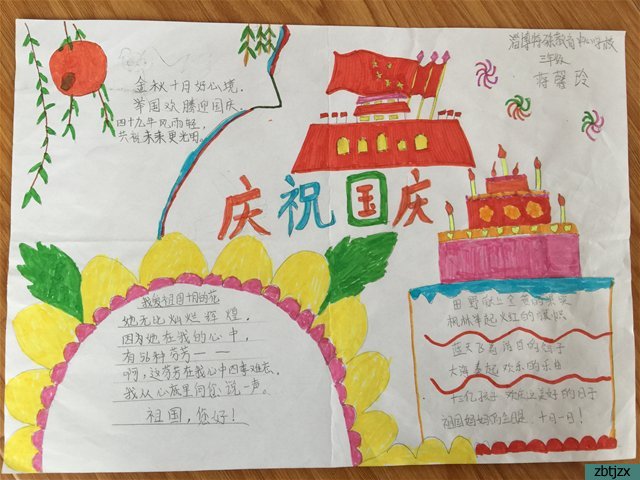 淄博特殊教育中心学校
三年级
蒋馨玲
金秋十月好心境，
举国欢腾迎国庆。
四十九年风雨轻，
共祝未来更光明。
庆祝国庆
我爱祖国的花
她无比灿烂辉煌，
因为她在我的心中，
有56种芬芳——
啊，这芬芳在我心中四季难忘，
我从心底里向您说一声。
祖国，您好！
田野献上金黄的果实
枫林举起火红的旗帜
蓝天飞着洁白的鸽子
大海奏起欢乐的乐曲
十三亿孩子欢庆这美好的日子
祖国妈妈的生日，十月一日！
zbtjzx